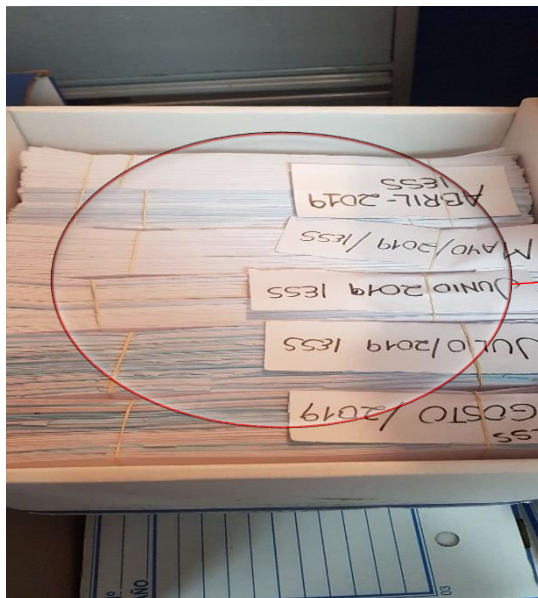 ABRIL-2019
IESS
MAYO/2019/IESS
JUNIO 2019 IESS
JULIO/2019 IESS
ESS
GOSTO/2019
Nº
AÑO
03